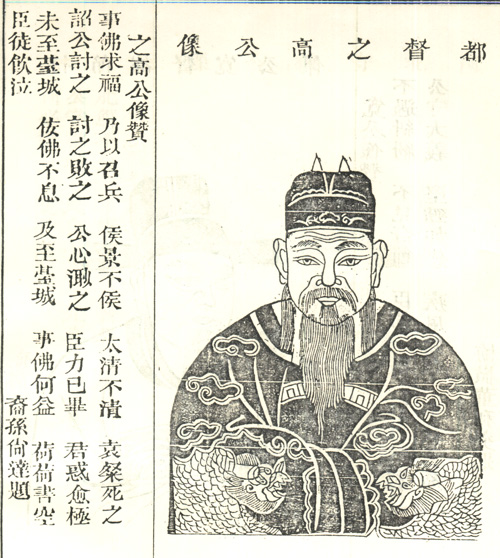 都督之高公像
之高公像贊
事佛求福 乃以召兵 侯景不侯 太清不清 袁粲死之
詔公討之 討之敗之 公心之 臣力已畢 君惑愈極
未至臺城 佞佛不息 及至臺城 事佛何益 荷荷書空
臣徒飲泣
裔孫尙達題